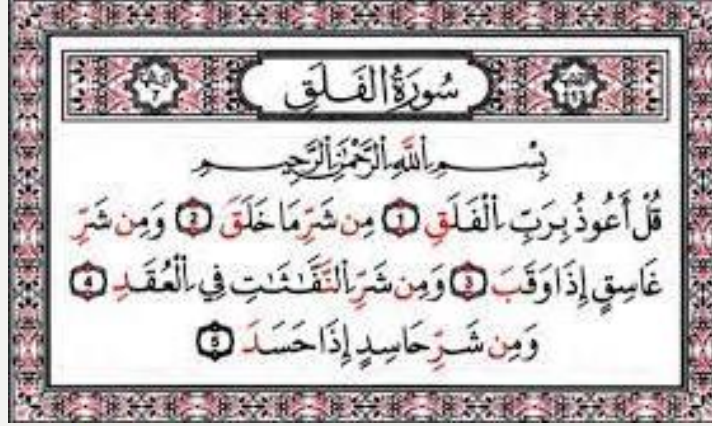 سُورَةُ الْفَلَقِ
بِسْمِ اللَّهِ الرَّحْمَٰنِ الرَّحِيمِ
قُلْ أَعُوذُ بِرَبِّ اِ۬لْفَلَقِ 1 مِن شَرِّ مَا خَلَقَ 2 وَمِن شَرِّ
غَاسِقٍ إِذَا وَقَبَ 3 وَمِن شَرِّ اِ۬لنَّفَّٰثَٰتِ فِي اِ۬لْعُقَدِ 4
وَمِن شَرِّ حَاسِدٍ إِذَا حَسَدَ 5